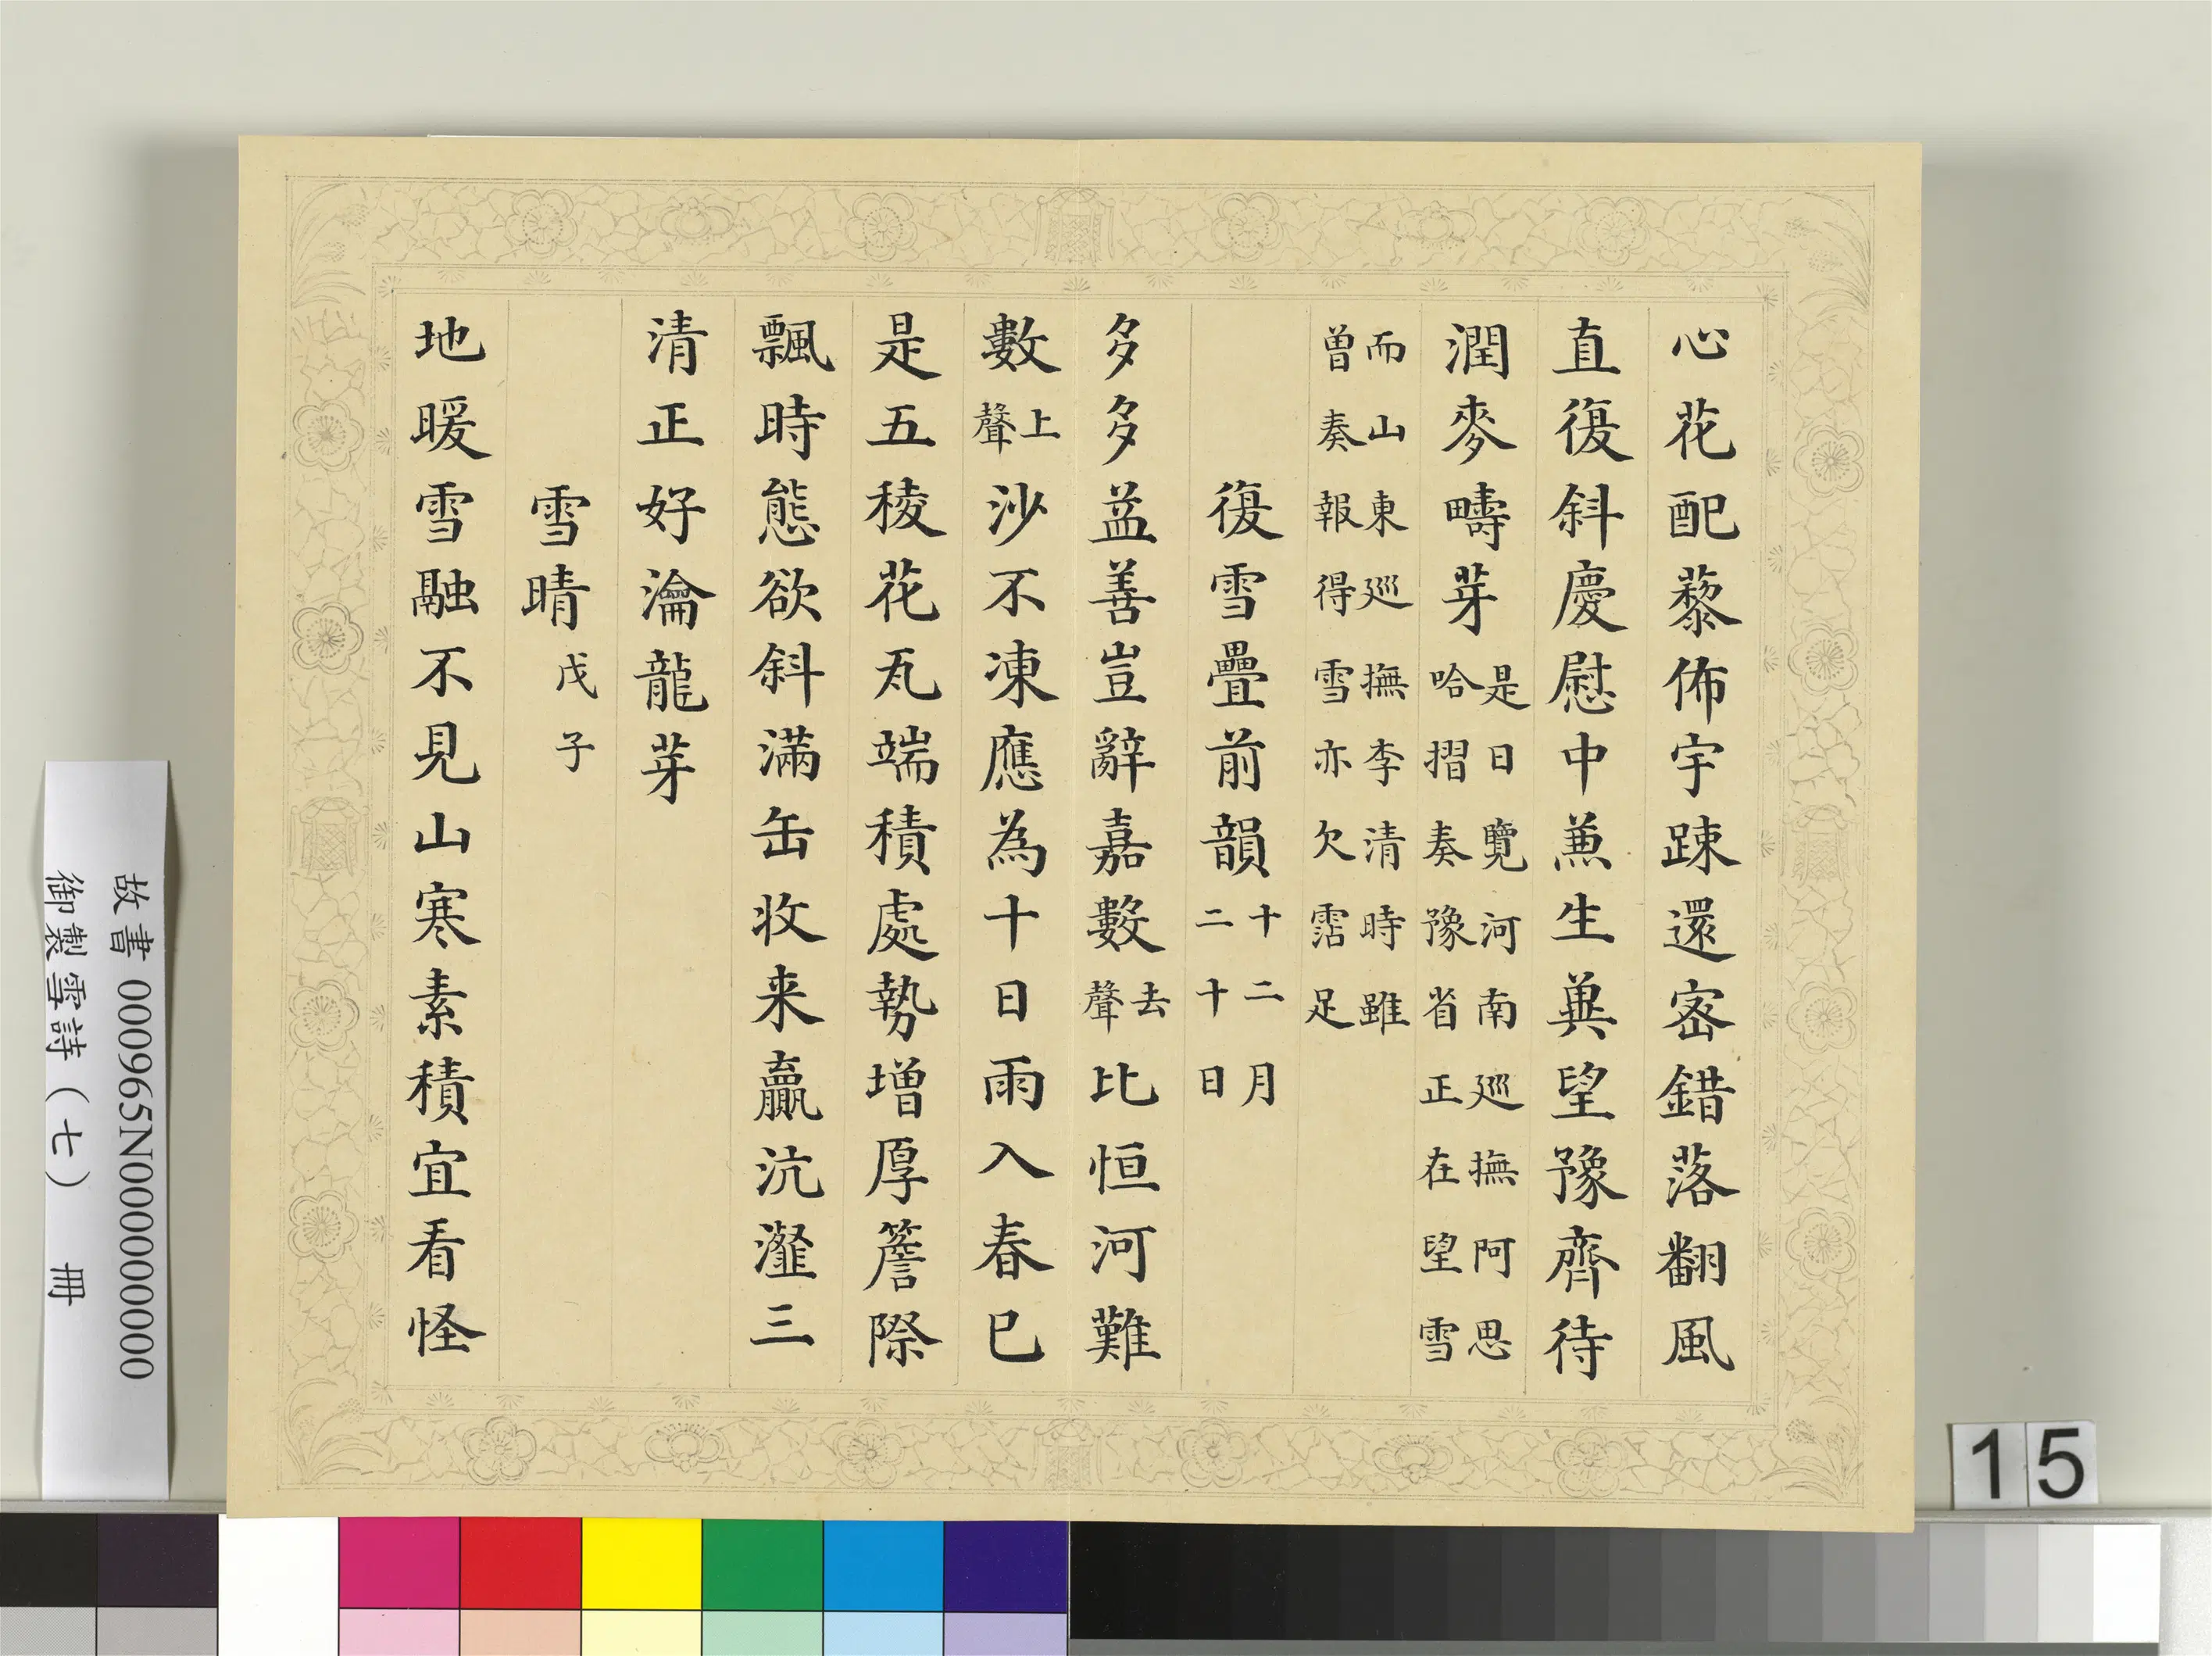 心花配藜佈宇踈還宻錯落翻風
直復斜慶慰中蕙生興望豫齊待
潤麥疇芽是日覽河南巡撫阿思
哈摺奏豫省正在望雪
而山東巡撫李清時雖
曾奏報得雪亦欠霑足
復雪疊前韻十二月
二十日
多多益善豈辭嘉數去聲比恒河難
數上聲沙不凍應為十日雨入春已
是五稜花瓦端積處勢增厚簷際
飄時態欲斜滿缶收来贏沆瀣三
清正好瀹龍芽
雪晴戊子
地暖雪融不見山寒素積宜看怪
故書 000965N000000000
御製雪詩（七） 冊
15